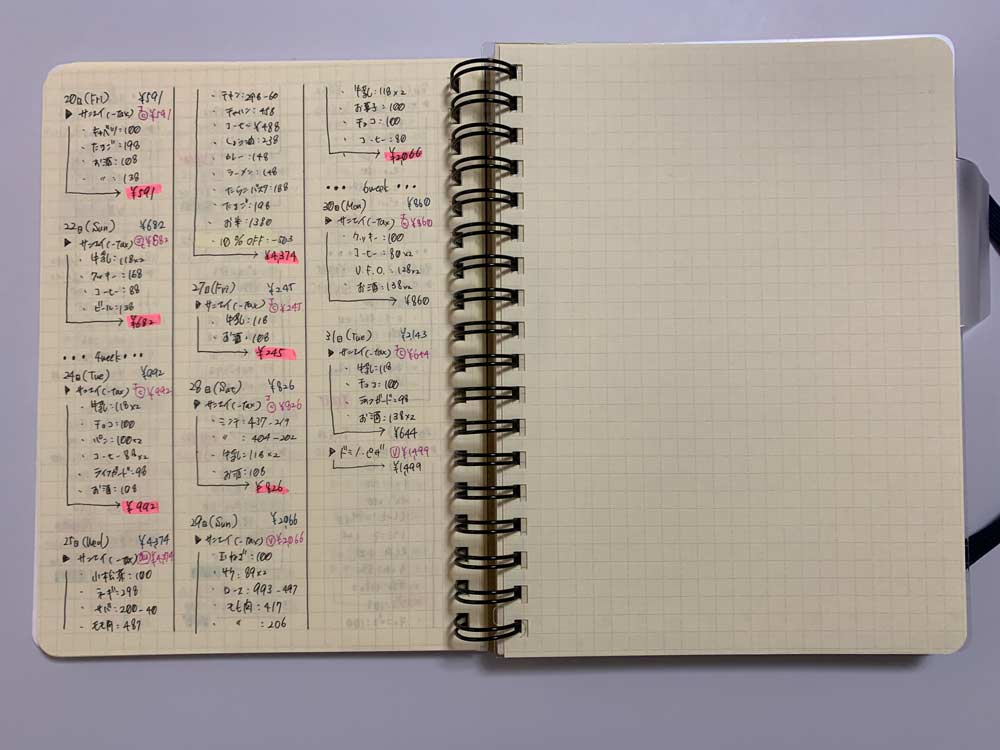 20日(Fri) ¥591
▶ サンエイ(-Tax) Ⓒ¥591
・キャベツ:100
・たまご:198
・お酒:108
・〃:138
→ ¥591
22日(Sun) ¥682
▶ サンエイ(-Tax) ¥682
・牛乳:118×2
・クッキー:168
・コーヒー:88
・ビール:138
→ ¥682
・・・ 4week ・・・
24日(Tue) ¥992
▶ サンエイ(-Tax) Ⓒ¥992
・牛乳:118×2
・チョコ:100
・パン:100×2
・コーヒー88×2
・ライフガード:98
・お酒:108
→ ¥992
25日(Wed) ¥4374
▶ サンエイ(-Tax) ¥4374
・小松菜:100
・ネギ:298
・サバ:200-40
・モモ肉:487
・チキン:298-60
・チャハン:458
・コーヒー¥488
・しょう油:238
・カレー:148
・ラーメン:148
・たらこパスタ:188
・たまご:198
・お米:1380
・10%OFF:-503
→ ¥4,374
27日(Fri) ¥245
▶ サンエイ(-Tax) Ⓒ¥245
・牛乳:118
・お酒:108
→ ¥245
28日(Sat) ¥826
▶ サンエイ(-Tax) Ⓒ¥826
・ミンチ:437-219
・〃:404-202
・牛乳:118×2
・お酒:108
→ ¥826
29日(Sun) ¥2066
▶ サンエイ(-Tax) Ⓥ¥2,066
・玉ねぎ:100
・89×2
・ロース:993-497
・モモ肉:417
・〃:206
・牛乳:118×2
・お菓子:100
・チョコ:100
・コーヒー:80
→ ¥2,066
・・・ 6week ・・・
30日(Mon) ¥860
▶ サンエイ(-Tax) Ⓒ¥860
・クッキー:100
・コーヒー:80×2
・U.F.O.:128×2
・お酒:138×2
→ ¥860
31日(Tue) ¥2143
▶ サンエイ(-Tax) Ⓒ¥644
・牛乳:118
・チョコ:100
・ライフガード:98
・お酒:138×2
→ ¥644
▶ ドミノ・ピザ Ⓥ¥1499
→ ¥1,499